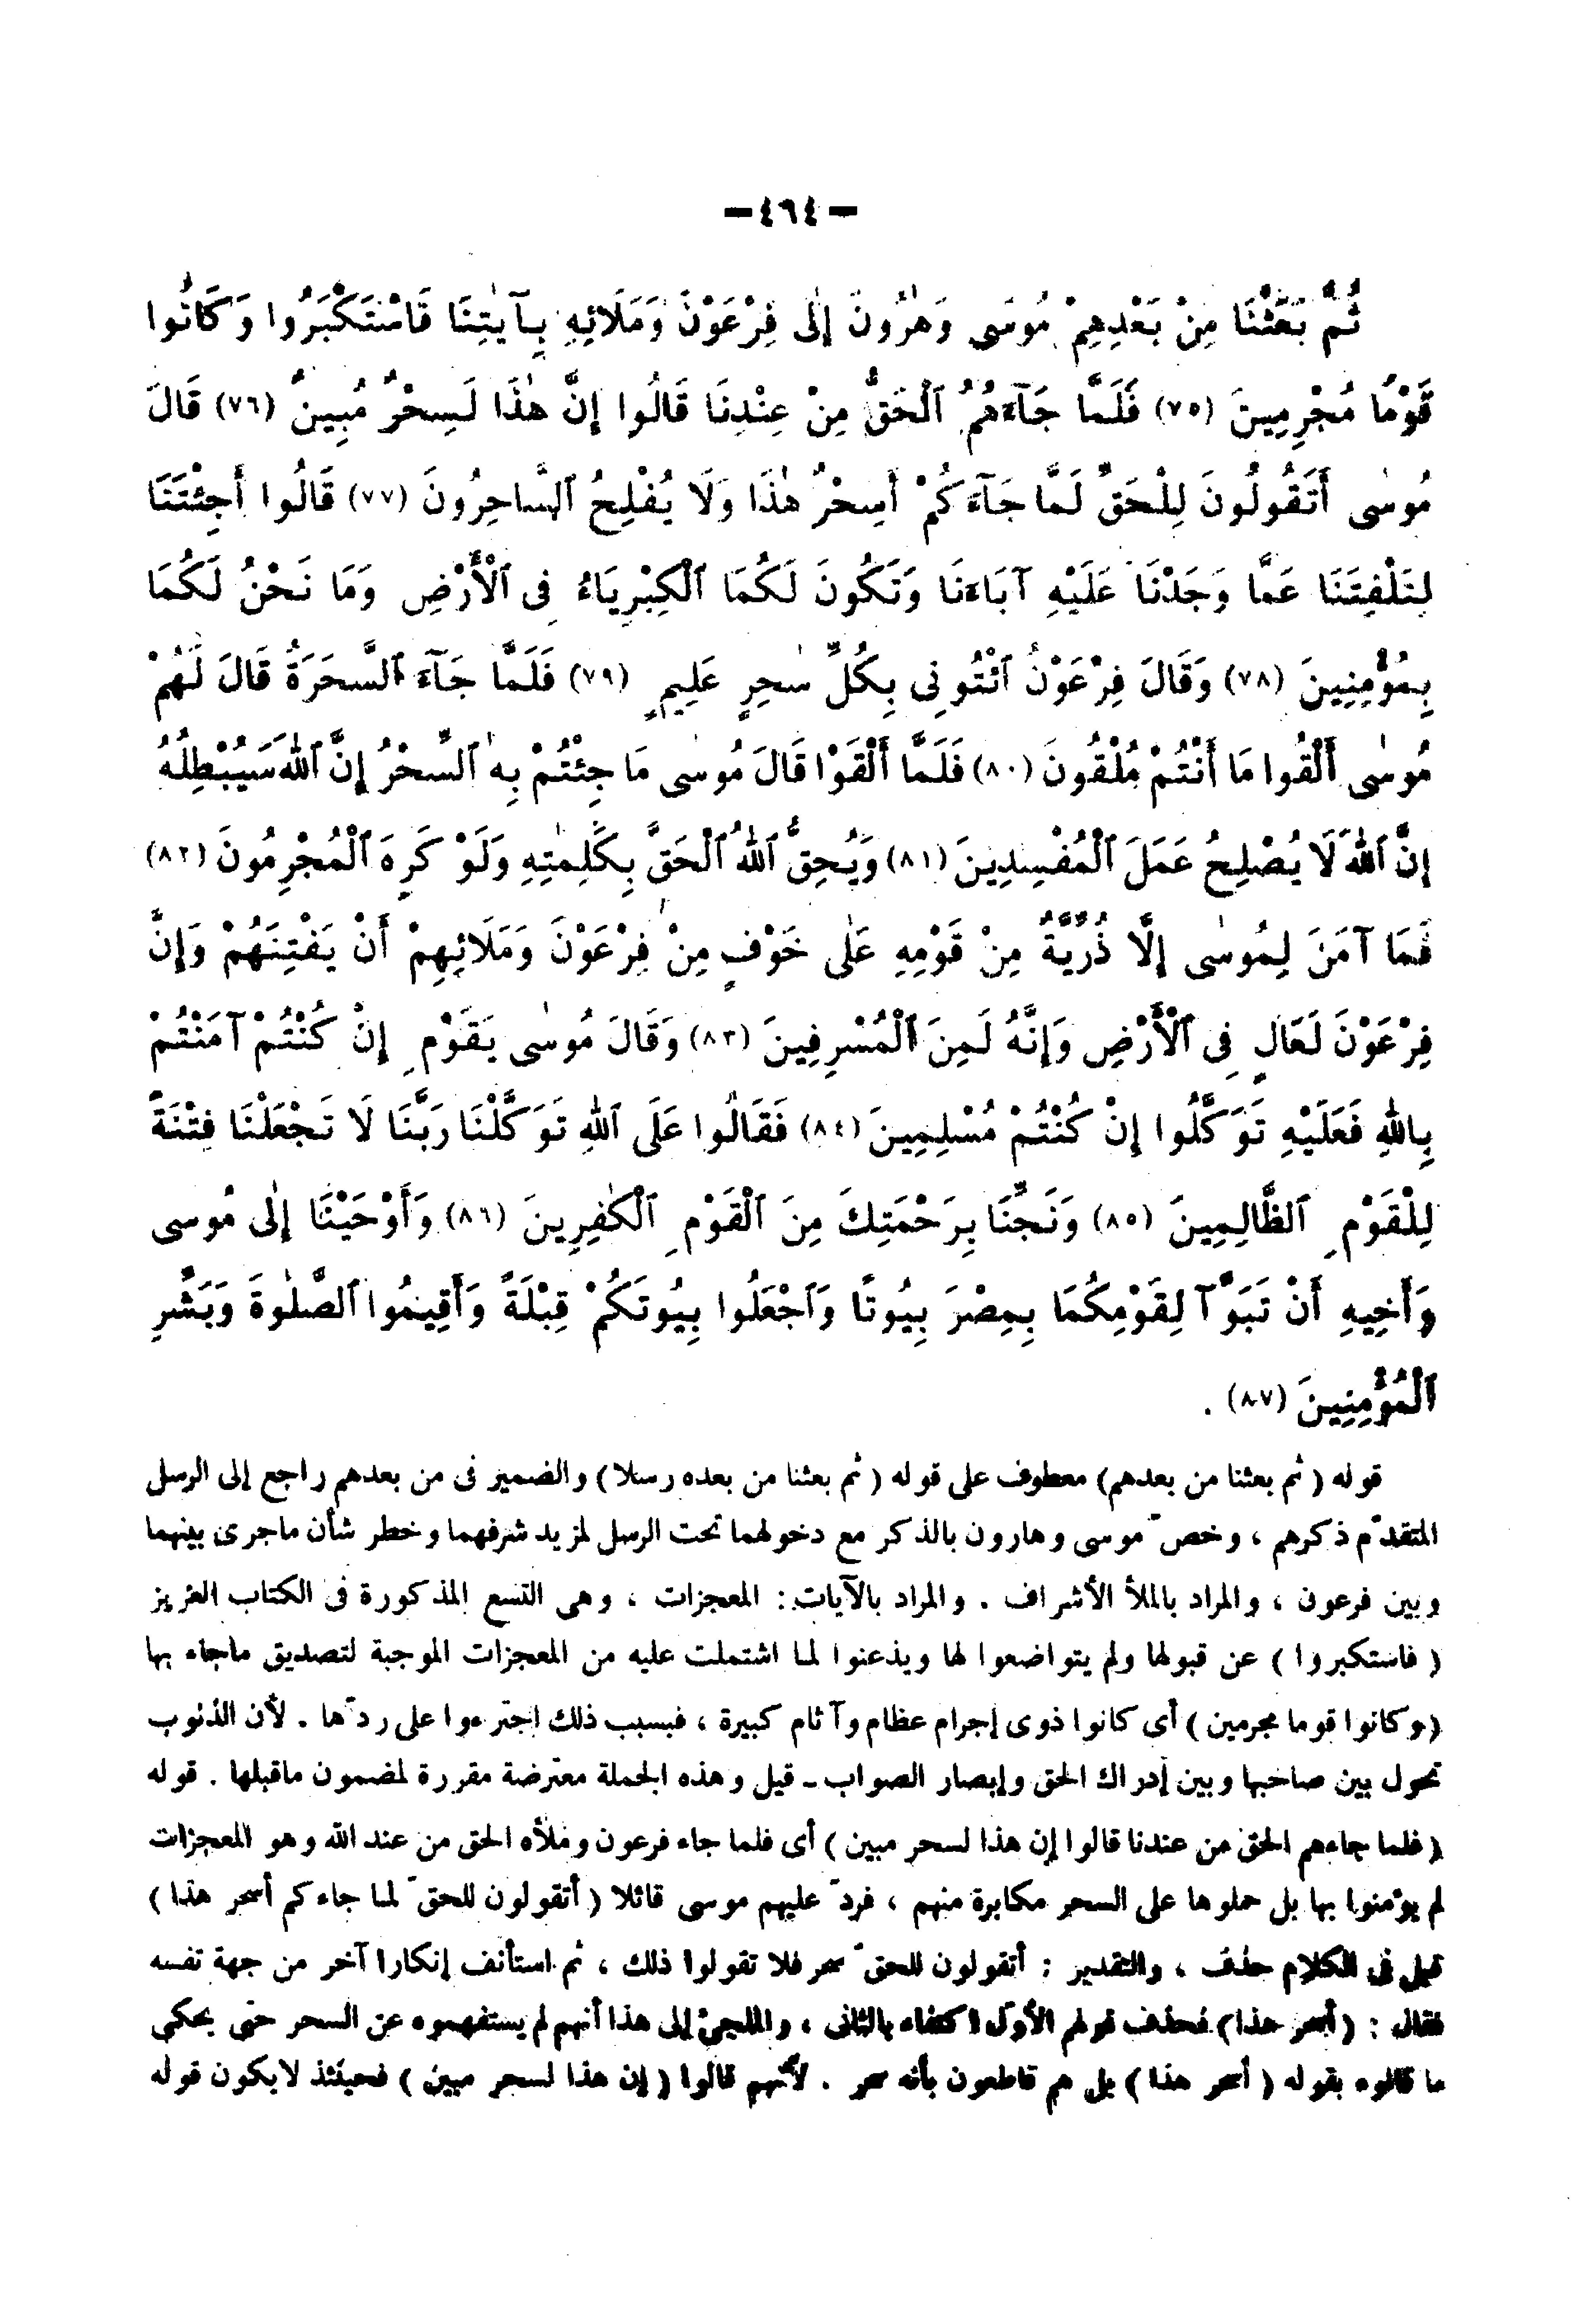 — ٤٦٤ —
ثُمَّ بَعَثْنَا مِنْ بَعْدِهِمْ مُوسَى وَهٰرُونَ إِلَى فِرْعَوْنَ وَمَلَائِهِ بِآيٰتِنَا فَاسْتَكْبَرُوا وَكَانُوا
قَوْمًا مُجْرِمِينَ (٧٥) فَلَمَّا جَآءَهُمُ ٱلْحَقُّ مِنْ عِنْدِنَا قَالُوا إِنَّ هٰذَا لَسِحْرٌ مُبِينٌ (٧٦) قَالَ
مُوسٰى أَتَقُولُونَ لِلْحَقِّ لَمَّا جَآءَكُمْ أَسِحْرٌ هٰذَا وَلَا يُفْلِحُ ٱلسَّاحِرُونَ (٧٧) قَالُوا أَجِئْتَنَا
لِتَلْفِتَنَا عَمَّا وَجَدْنَا عَلَيْهِ آبَاءَنَا وَتَكُونَ لَكُمَا ٱلْكِبْرِيَاءُ فِى ٱلْأَرْضِ وَمَا نَحْنُ لَكُمَا
بِمُؤْمِنِينَ (٧٨) وَقَالَ فِرْعَوْنُ ٱئْتُونِى بِكُلِّ سٰحِرٍ عَلِيمٍ (٧٩) فَلَمَّا جَآءَ ٱلسَّحَرَةُ قَالَ لَهُمْ
مُوسٰى أَلْقُوا مَا أَنْتُمْ مُلْقُونَ (٨٠) فَلَمَّا أَلْقَوْا قَالَ مُوسٰى مَا جِئْتُمْ بِهِ ٱلسِّحْرُ إِنَّ ٱللهَ سَيُبْطِلُهُ
إِنَّ ٱللهَ لَا يُصْلِحُ عَمَلَ ٱلْمُفْسِدِينَ (٨١) وَيُحِقُّ ٱللهُ ٱلْحَقَّ بِكَلِمٰتِهِ وَلَوْ كَرِهَ ٱلْمُجْرِمُونَ (٨٢)
فَمَا آمَنَ لِمُوسٰى إِلَّا ذُرِّيَّةٌ مِنْ قَوْمِهِ عَلٰى خَوْفٍ مِنْ فِرْعَوْنَ وَمَلَائِهِمْ أَنْ يَفْتِنَهُمْ وَإِنَّ
فِرْعَوْنَ لَعَالٍ فِى ٱلْأَرْضِ وَإِنَّهُ لَمِنَ ٱلْمُسْرِفِينَ (٨٣) وَقَالَ مُوسٰى يَقَوْمِ إِنْ كُنْتُمْ آمَنْتُمْ
بِاللهِ فَعَلَيْهِ تَوَكَّلُوا إِنْ كُنْتُمْ مُسْلِمِينَ (٨٤) فَقَالُوا عَلَى ٱللهِ تَوَكَّلْنَا رَبَّنَا لَا تَجْعَلْنَا فِتْنَةً
لِلْقَوْمِ ٱلظَّالِمِينَ (٨٥) وَنَجِّنَا بِرَحْمَتِكَ مِنَ ٱلْقَوْمِ ٱلْكٰفِرِينَ (٨٦) وَأَوْحَيْنَا إِلٰى مُوسى
وَأَخِيهِ أَنْ تَبَوَّآ لِقَوْمِكُمَا بِمِصْرَ بِيُوتًا وَٱجْعَلُوا بِيُوتَكُمْ قِبْلَةً وَأَقِيمُوا ٱلصَّلٰوةَ وَبَشِّرِ
ٱلْمُؤْمِنِينَ (٨٧) .
قوله (ثم بعثنا من بعدهم) معطوف على قوله (ثم بعثنا من بعده رسلا) والضمير فى من بعدهم راجع إلى الرسل
المتقدّم ذكرهم ، وخصّ موسى وهارون بالذكر مع دخولهما تحت الرسل لمزيد شرفهما وخطر شأن ماجرى بينهما
وبين فرعون ، والمراد بالملأ الأشراف . والمراد بالآيات : المعجزات ، وهى التسع المذكورة فى الكتاب العزيز
(فاستكبروا) عن قبولها ولم يتواضعوا لها ويذعنوا لما اشتملت عليه من المعجزات الموجبة لتصديق ماجاء بها
(وكانوا قوما مجرمين) أى كانوا ذوى إجرام عظام وآثام كبيرة ، فبسبب ذلك اجترءوا على ردّها . لأن الذنوب
تحول بين صاحبها وبين إدراك الحق وإبصار الصواب ـ قيل وهذه الجملة معترضة مقررة لمضمون ماقبلها . قوله
(فلما جاءهم الحق من عندنا قالوا إن هذا لسحر مبين) أى فلما جاء فرعون وملأه الحق من عند الله وهو المعجزات
لم يؤمنوا بها بل حملوها على السحر مكابرة منهم ، فردّ عليهم موسى قائلا (أتقولون للحقّ لما جاءكم أسحر هذا)
قيل فى الكلام حذف ، والتقدير : أتقولون للحقّ سحر فلا تقولوا ذلك ، ثم استأنف إنكارا آخر من جهة نفسه
فقال : (أسحر هذا) فحذف قولهم الأوّل اكتفاء بالثانى ، والملجئ إلى هذا أنهم لم يستفهموه عن السحر حتى يحكى
ما قالوه بقوله (أسحر هذا) بل هم قاطعون بأنه سحر . لأنهم قالوا (إن هذا لسحر مبين) فحينئذ لايكون قوله